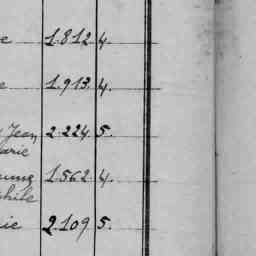 e 1.812 4.
e 1.913. 4.
Jean 2.224. 5.
arie
1.562. 4.
phile
ie 2.109 5.